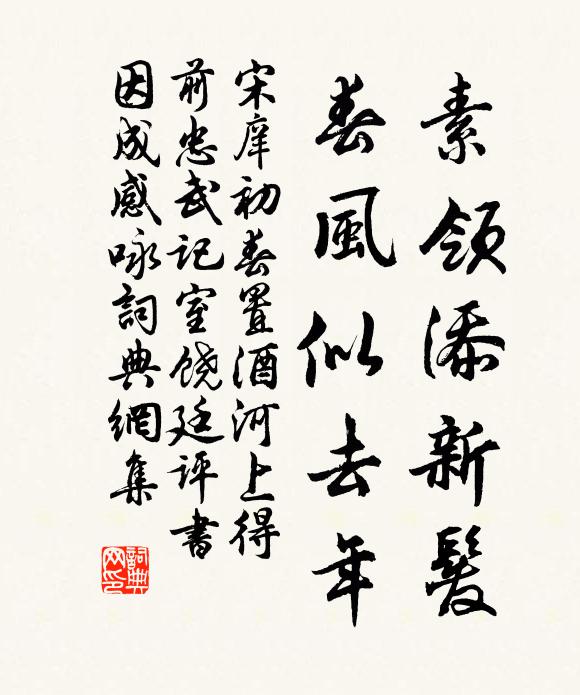 素領添新髮
春風似去年
宋庠初春置酒河上得
前忠武記室饒廷評書
因成感咏詞典網集
詞典
网印